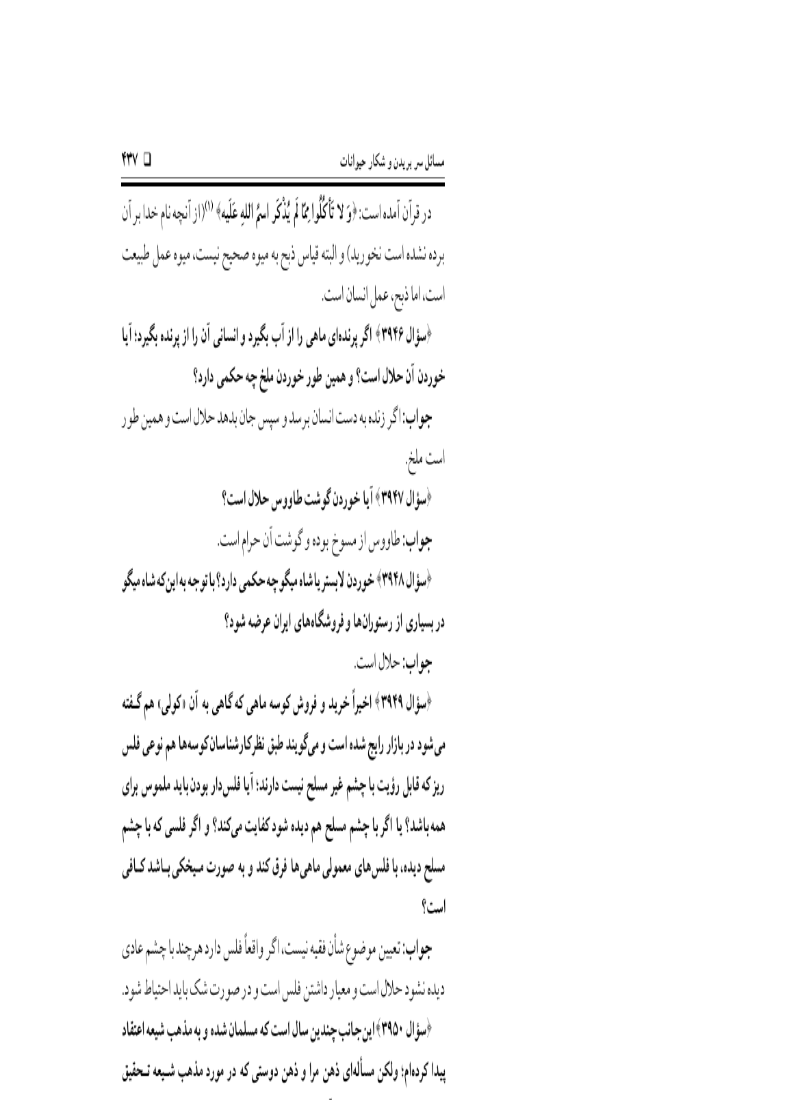 مسائل سر بریدن و شکار حیوانات ❑ ۴۳۷
در قرآن آمده است: ﴿وَ لا تَأکُلُوا مِمّا لَم یُذْکَر اسمُ اللهِ عَلَیه﴾ (۱)(از آنچه نام خدا بر آن
برده نشده است نخورید) و البته قیاس ذبح به میوه صحیح نیست، میوه عمل طبیعت
است، اما ذبح، عمل انسان است.
﴿سؤال ۳۹۴۶﴾ اگر پرنده‌ای ماهی را از آب بگیرد و انسانی آن را از پرنده بگیرد؛ آیا
خوردن آن حلال است؟ و همین طور خوردن ملخ چه حکمی دارد؟
جواب: اگر زنده به دست انسان برسد و سپس جان بدهد حلال است و همین طور
است ملخ.
﴿سؤال ۳۹۴۷﴾ آیا خوردن گوشت طاووس حلال است؟
جواب: طاووس از مسوخ بوده و گوشت آن حرام است.
﴿سؤال ۳۹۴۸﴾ خوردن لابستر یا شاه میگو چه حکمی دارد؟ با توجه به این‌که شاه میگو
در بسیاری از رستوران‌ها و فروشگاه‌های ایران عرضه شود؟
جواب: حلال است.
﴿سؤال ۳۹۴۹﴾ اخیراً خرید و فروش کوسه ماهی که گاهی به آن «کولی» هم گفته
می‌شود در بازار رایج شده است و می‌گویند طبق نظر کارشناسان کوسه‌ها هم نوعی فلس
ریز که قابل رؤیت با چشم غیر مسلح نیست دارند؛ آیا فلس‌دار بودن باید ملموس برای
همه باشد؟ یا اگر با چشم مسلح هم دیده شود کفایت می‌کند؟ و اگر فلسی که با چشم
مسلح دیده، با فلس‌های معمولی ماهی‌ها فرق کند و به صورت میخکی باشد کافی
است؟
جواب: تعیین موضوع شأن فقیه نیست، اگر واقعاً فلس دارد هرچند با چشم عادی
دیده نشود حلال است و معیار داشتن فلس است و در صورت شک باید احتیاط شود.
﴿سؤال ۳۹۵۰﴾ این جانب چندین سال است که مسلمان شده و به مذهب شیعه اعتقاد
پیدا کرده‌ام؛ ولکن مسأله‌ای ذهن مرا و ذهن دوستی که در مورد مذهب شیعه تحقیق